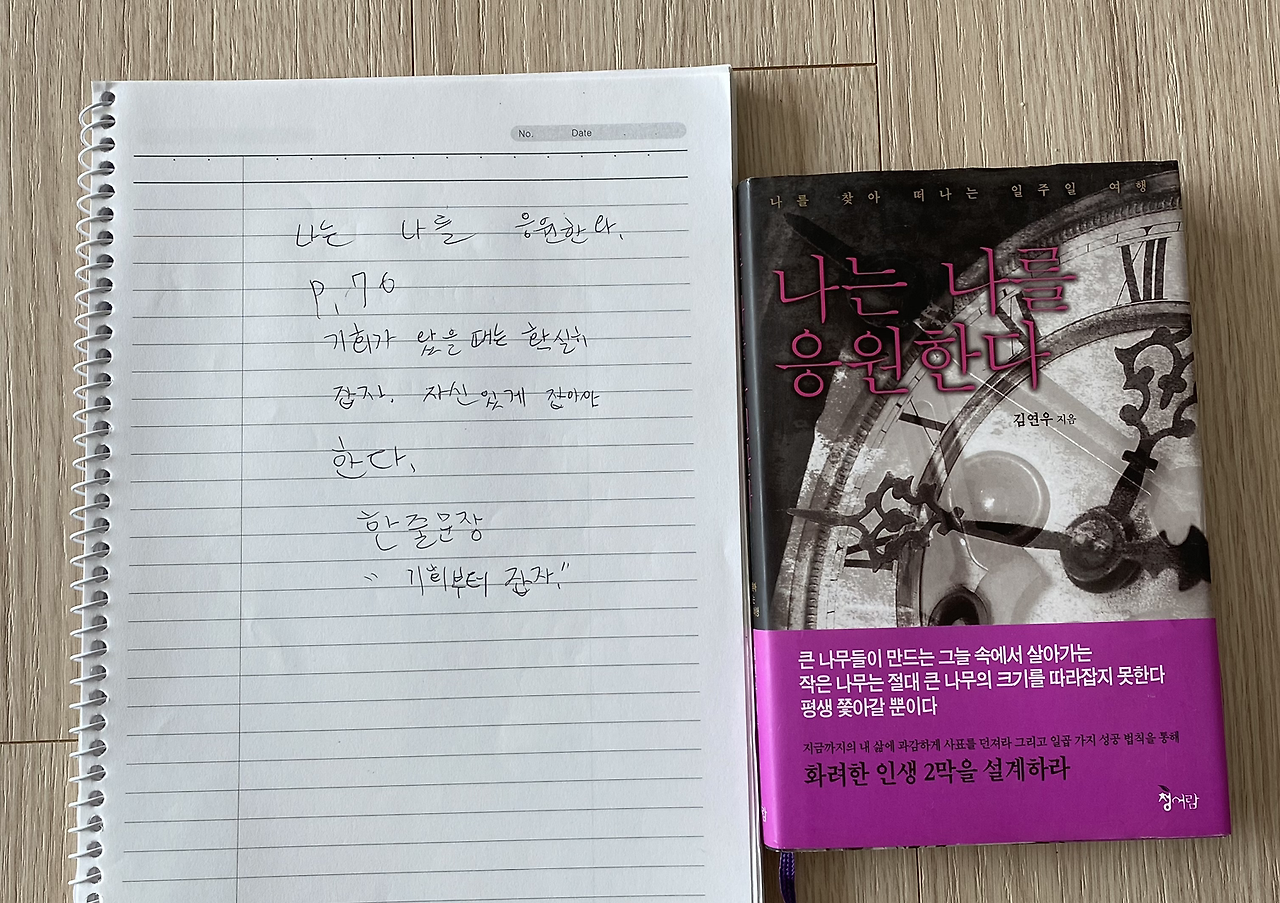 No. Date
나는 나를 응원한다.
P. 76
기회가 왔을 때는 확실히
잡자. 자신있게 잡아야
한다.
한줄문장
"기회부터 잡자."
나를 찾아 떠나는 일주일 여행
나는 나를
응원한다
김연우 지음
XII
큰 나무들이 만드는 그늘 속에서 살아가는
작은 나무는 절대 큰 나무의 크기를 따라잡지 못한다
평생 쫓아갈 뿐이다
지금까지의 내 삶에 과감하게 사표를 던져라 그리고 일곱 가지 성공 법칙을 통해
화려한 인생 2막을 설계하라
청어람